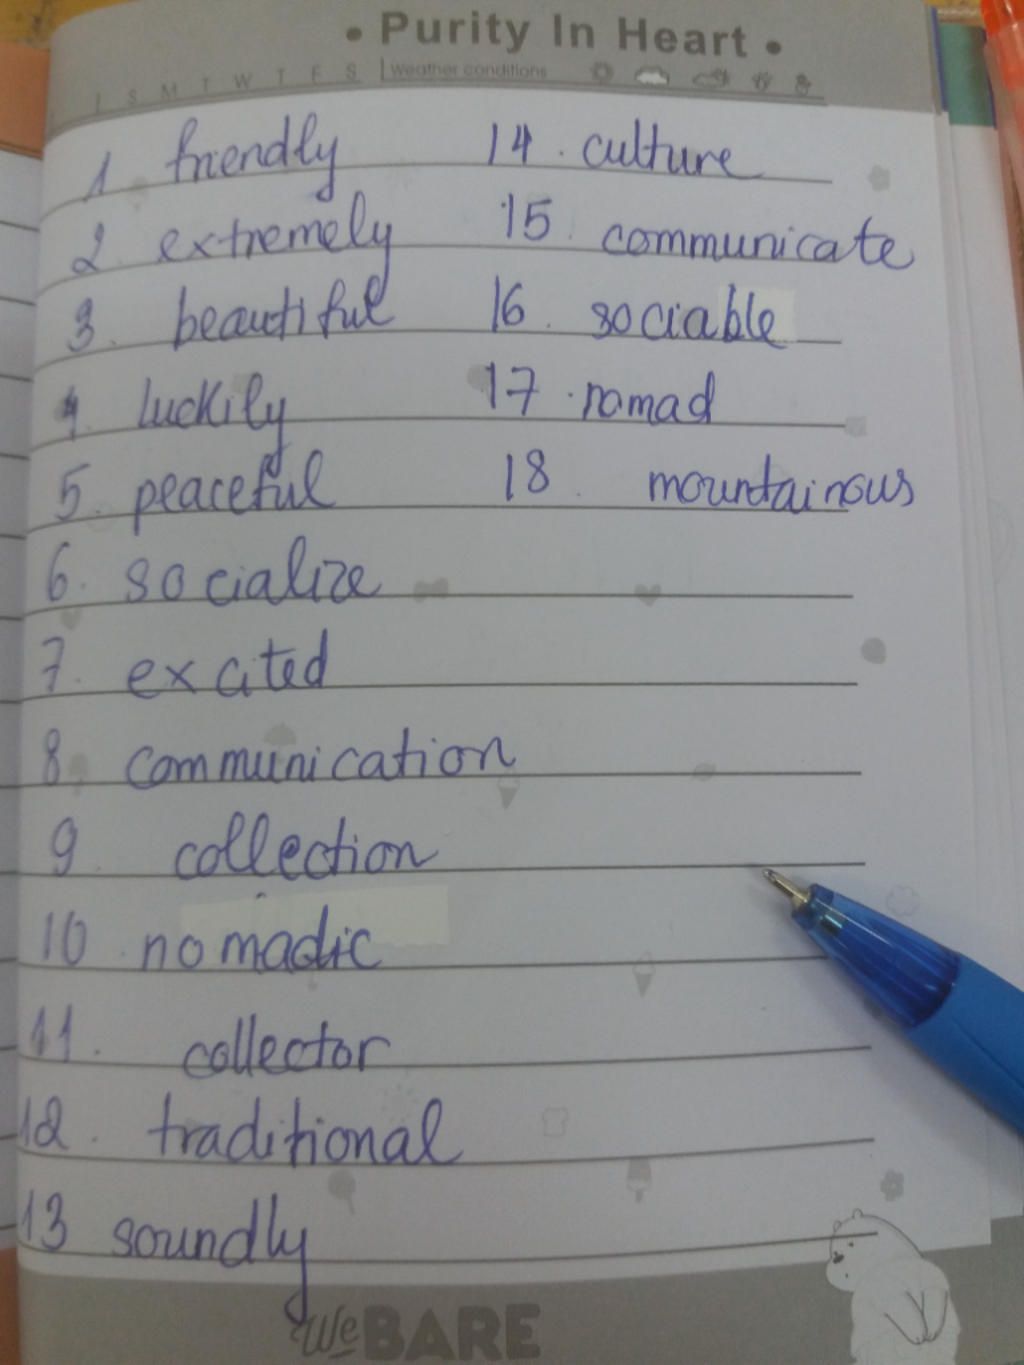 • Purity In Heart •
S M T W T F S Weather conditions
1 friendly
2 extremely
3. beautiful
4. luckily
5. peaceful
6. socialize
7. excited
8. communication
9. collection
10. nomadic
11. collector
12. traditional
13 soundly
14. culture
15. communicate
16. sociable
17. nomad
18. mountainous
We BARE